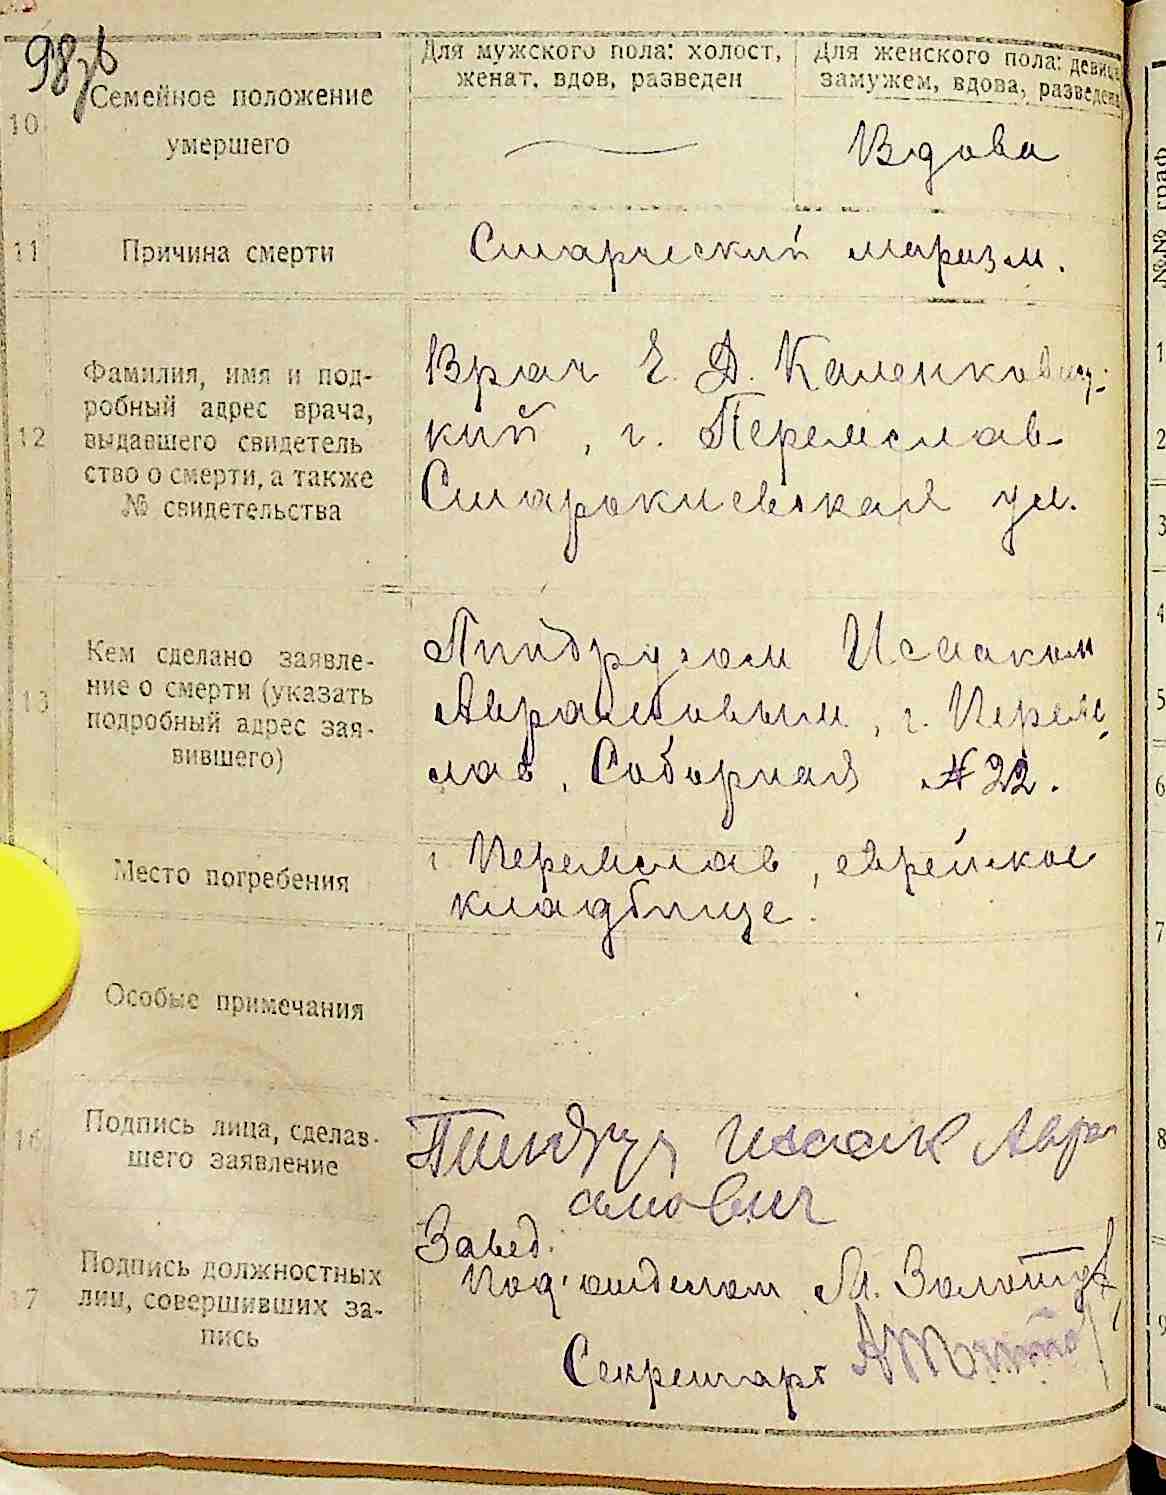 98
10
Семейное положение
умершего
Для мужского пола: холост,
женат, вдов, разведен
Для женского пола: девица
замужем, вдова, разведена
Вдова
11
Причина смерти
Старческий маразм.
12
Фамилия, имя и под-
робный адрес врача,
выдавшего свидетель
ство о смерти, а также
№ свидетельства
Врач Е. Д.
кий, г. Переяслав-
Старокиевская ул.
13
Кем сделано заявле-
ние о смерти (указать
подробный адрес зая-
вившего)
Исааком
Аврамовым, г. Переяс
лав, Соборная № 22.
Место погребения
г. Переяслав, еврейское
кладбище.
Особые примечания
16
Подпись лица, сделав-
шего заявление
Исаак Авра
амович
17
Подпись должностных
лиц, совершивших за-
пись
Завед.
Под'отделом М.
Секретарь
№№ граф
1
2
3
4
5
6
7
8
9